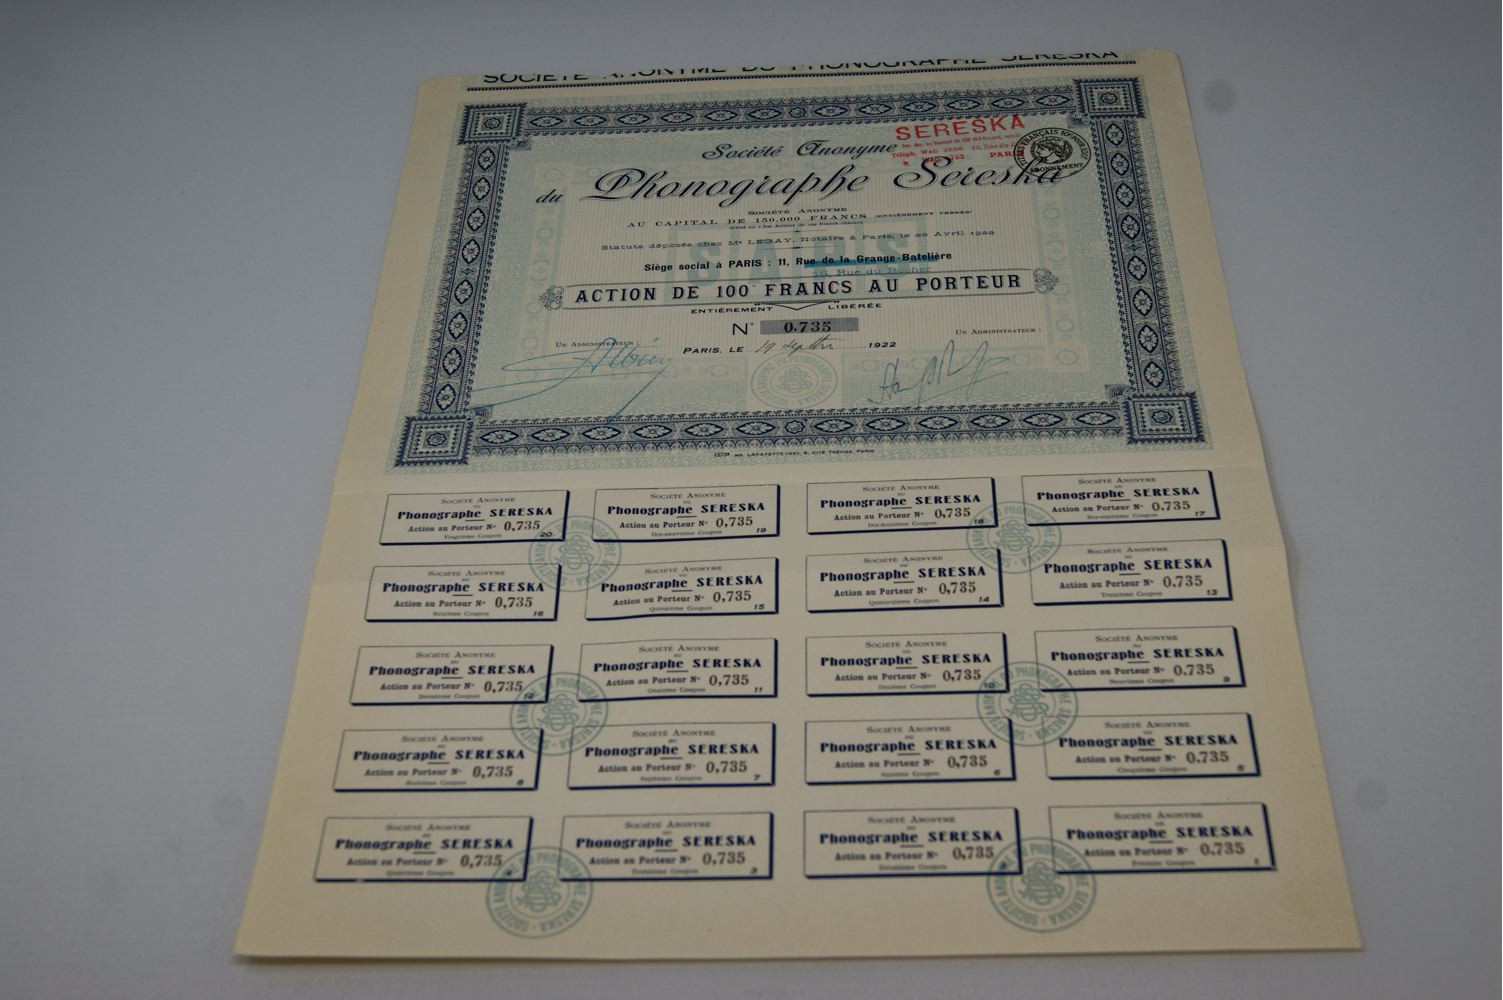 SOCIÉTÉ ANONYME DU PHONOGRAPHE SERESKA
SERESKA
PARIS
Société Anonyme
du Phonographe Sereska
SOCIÉTÉ ANONYME
AU CAPITAL DE 150.000 FRANCS (ENTIÈREMENT VERSÉS)
Statuts déposés chez Me LEGAY, Notaire à Paris, le 20 Avril 1922
Siège social à PARIS : 11, Rue de la Grange-Batelière
Rue du Rocher
ACTION DE 100 FRANCS AU PORTEUR
ENTIÈREMENT LIBÉRÉE
N° 0.735
UN ADMINISTRATEUR : UN ADMINISTRATEUR :
PARIS, LE 19 Septbre 1922
IMP. LAFAYETTE, 5, CITÉ TRÉVISE, PARIS
SOCIÉTÉ ANONYME
DU
Phonographe SERESKA
Action au Porteur N° 0,735
Vingtième Coupon 20
SOCIÉTÉ ANONYME
DU
Phonographe SERESKA
Action au Porteur N° 0,735
Dix-neuvième Coupon 19
SOCIÉTÉ ANONYME
DU
Phonographe SERESKA
Action au Porteur N° 0,735
Dix-huitième Coupon 18
SOCIÉTÉ ANONYME
DU
Phonographe SERESKA
Action au Porteur N° 0,735
Dix-septième Coupon 17
SOCIÉTÉ ANONYME
DU
Phonographe SERESKA
Action au Porteur N° 0,735
Seizième Coupon 16
SOCIÉTÉ ANONYME
DU
Phonographe SERESKA
Action au Porteur N° 0,735
Quinzième Coupon 15
SOCIÉTÉ ANONYME
DU
Phonographe SERESKA
Action au Porteur N° 0,735
Quatorzième Coupon 14
SOCIÉTÉ ANONYME
DU
Phonographe SERESKA
Action au Porteur N° 0,735
Treizième Coupon 13
SOCIÉTÉ ANONYME
DU
Phonographe SERESKA
Action au Porteur N° 0,735
Douzième Coupon 12
SOCIÉTÉ ANONYME
DU
Phonographe SERESKA
Action au Porteur N° 0,735
Onzième Coupon 11
SOCIÉTÉ ANONYME
DU
Phonographe SERESKA
Action au Porteur N° 0,735
Dixième Coupon 10
SOCIÉTÉ ANONYME
DU
Phonographe SERESKA
Action au Porteur N° 0,735
Neuvième Coupon 9
SOCIÉTÉ ANONYME
DU
Phonographe SERESKA
Action au Porteur N° 0,735
Huitième Coupon 8
SOCIÉTÉ ANONYME
DU
Phonographe SERESKA
Action au Porteur N° 0,735
Septième Coupon 7
SOCIÉTÉ ANONYME
DU
Phonographe SERESKA
Action au Porteur N° 0,735
Sixième Coupon 6
SOCIÉTÉ ANONYME
DU
Phonographe SERESKA
Action au Porteur N° 0.735
Cinquième Coupon 5
SOCIÉTÉ ANONYME
DU
Phonographe SERESKA
Action au Porteur N° 0,735
Quatrième Coupon 4
SOCIÉTÉ ANONYME
DU
Phonographe SERESKA
Action au Porteur N° 0,735
Troisième Coupon 3
SOCIÉTÉ ANONYME
DU
Phonographe SERESKA
Action au Porteur N° 0,735
Deuxième Coupon
SOCIÉTÉ ANONYME
DU
Phonographe SERESKA
Action au Porteur N° 0.735
Premier Coupon 1